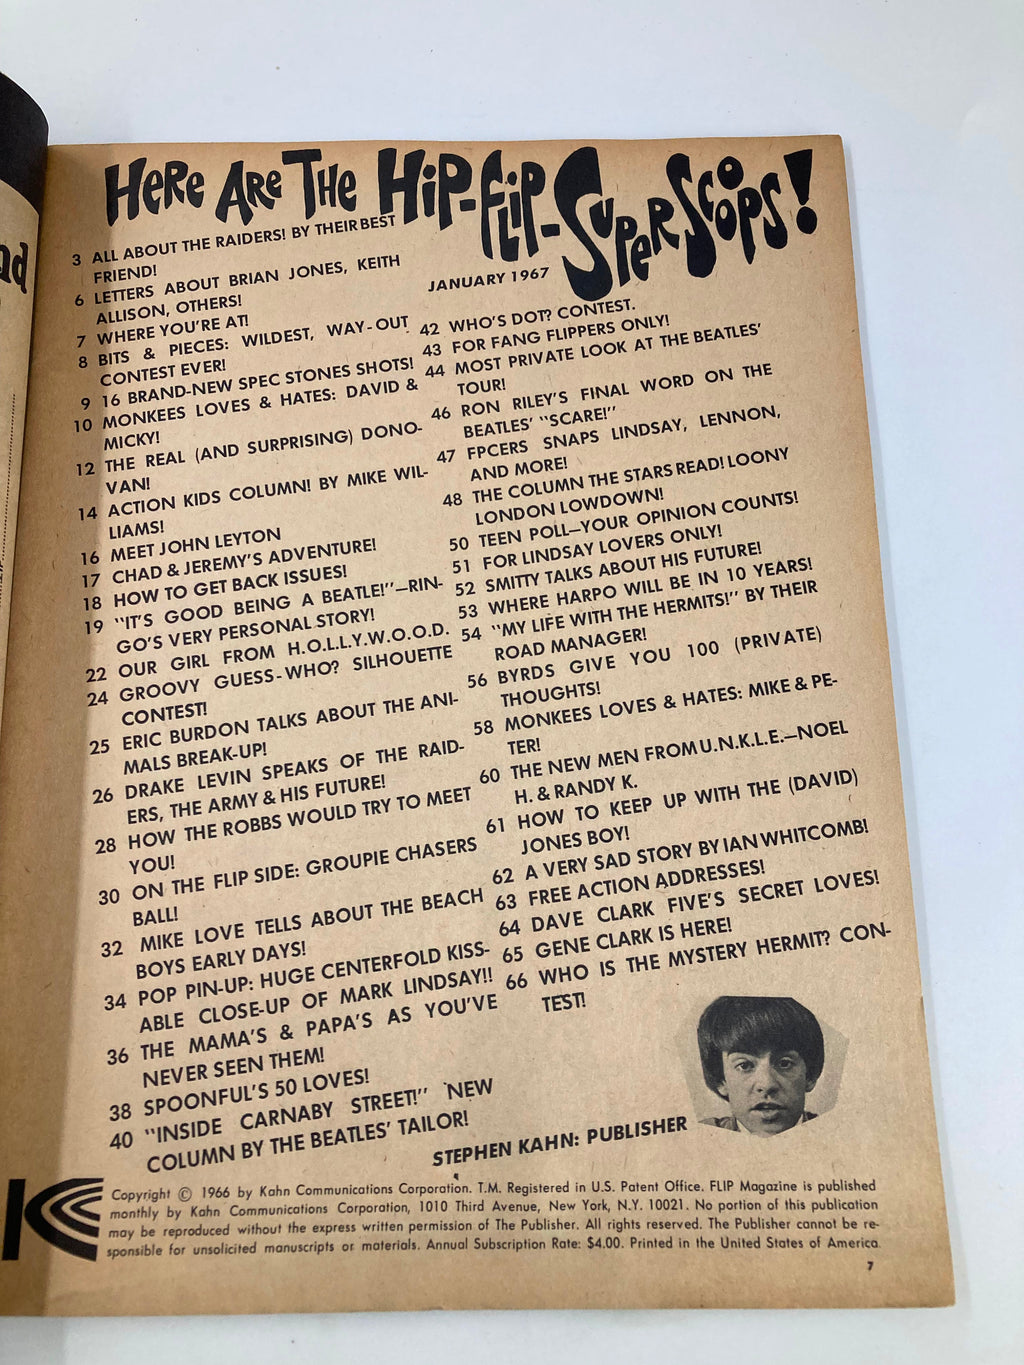 ad
HERE ARE THE HIP-FLIP-SUPER SCOOPS!
3 ALL ABOUT THE RAIDERS! BY THEIR BEST
FRIEND!
6 LETTERS ABOUT BRIAN JONES, KEITH
ALLISON, OTHERS!
7 WHERE YOU'RE AT!
8 BITS & PIECES: WILDEST, WAY-OUT
CONTEST EVER!
9 16 BRAND-NEW SPEC STONES SHOTS!
10 MONKEES LOVES & HATES: DAVID &
MICKY!
12 THE REAL (AND SURPRISING) DONO-
VAN!
14 ACTION KIDS COLUMN! BY MIKE WIL-
LIAMS!
16 MEET JOHN LEYTON
17 CHAD & JEREMY'S ADVENTURE!
18 HOW TO GET BACK ISSUES!
19 "IT'S GOOD BEING A BEATLE!"—RIN-
GO'S VERY PERSONAL STORY!
22 OUR GIRL FROM H.O.L.L.Y.W.O.O.D.
24 GROOVY GUESS-WHO? SILHOUETTE
CONTEST!
25 ERIC BURDON TALKS ABOUT THE ANI-
MALS BREAK-UP!
26 DRAKE LEVIN SPEAKS OF THE RAID-
ERS, THE ARMY & HIS FUTURE!
28 HOW THE ROBBS WOULD TRY TO MEET
YOU!
30 ON THE FLIP SIDE: GROUPIE CHASERS
BALL!
32 MIKE LOVE TELLS ABOUT THE BEACH
BOYS EARLY DAYS!
34 POP PIN-UP: HUGE CENTERFOLD KISS-
ABLE CLOSE-UP OF MARK LINDSAY!!
36 THE MAMA'S & PAPA'S AS YOU'VE
NEVER SEEN THEM!
38 SPOONFUL'S 50 LOVES!
40 "INSIDE CARNABY STREET!" NEW
COLUMN BY THE BEATLES' TAILOR!
JANUARY 1967
42 WHO'S DOT? CONTEST.
43 FOR FANG FLIPPERS ONLY!
44 MOST PRIVATE LOOK AT THE BEATLES'
TOUR!
46 RON RILEY'S FINAL WORD ON THE
BEATLES' "SCARE!"
47 FPCERS SNAPS LINDSAY, LENNON,
AND MORE!
48 THE COLUMN THE STARS READ! LOONY
LONDON LOWDOWN!
50 TEEN POLL—YOUR OPINION COUNTS!
51 FOR LINDSAY LOVERS ONLY!
52 SMITTY TALKS ABOUT HIS FUTURE!
53 WHERE HARPO WILL BE IN 10 YEARS!
54 "MY LIFE WITH THE HERMITS!" BY THEIR
ROAD MANAGER!
56 BYRDS GIVE YOU 100 (PRIVATE)
THOUGHTS!
58 MONKEES LOVES & HATES: MIKE & PE-
TER!
60 THE NEW MEN FROM U.N.K.L.E.—NOEL
H. & RANDY K.
61 HOW TO KEEP UP WITH THE (DAVID)
JONES BOY!
62 A VERY SAD STORY BY IAN WHITCOMB!
63 FREE ACTION ADDRESSES!
64 DAVE CLARK FIVE'S SECRET LOVES!
65 GENE CLARK IS HERE!
66 WHO IS THE MYSTERY HERMIT? CON-
TEST!
STEPHEN KAHN: PUBLISHER
K
Copyright © 1966 by Kahn Communications Corporation. T.M. Registered in U.S. Patent Office. FLIP Magazine is published
monthly by Kahn Communications Corporation, 1010 Third Avenue, New York, N.Y. 10021. No portion of this publication
may be reproduced without the express written permission of The Publisher. All rights reserved. The Publisher cannot be re-
sponsible for unsolicited manuscripts or materials. Annual Subscription Rate: $4.00. Printed in the United States of America.
7